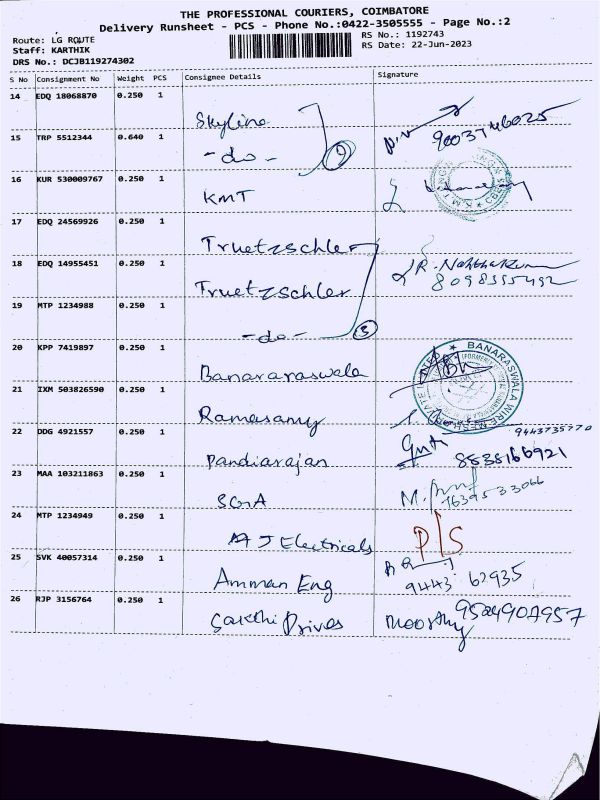 THE PROFESSIONAL COURIERS, COIMBATORE
Delivery Runsheet - PCS - Phone No.:0422-3505555 - Page No.:2
Route: LG ROUTE
Staff: KARTHIK
DRS No.: DCJB119274302
RS No.: 1192743
RS Date: 22-Jun-2023
S No Consignment No Weight PCS Consignee Details Signature
14 EDQ 18068870 0.250 1 Skyline 9003746025
15 TRP 5512344 0.640 1 -do-
16 KUR 530009767 0.250 1 KMT
17 EDQ 24569926 0.250 1 Truetzschler
18 EDQ 14955451 0.250 1 Truetzschler
19 MTP 1234988 0.250 1 -do- 3
20 KPP 7419897 0.250 1 Banararaswala BANARASWALA WIRE
21 IXM 503826590 0.250 1 Ramasamy 9443735770
22 DDG 4921557 0.250 1 Pandiarajan 8538166921
23 MAA 103211863 0.250 1 SGA
24 MTP 1234949 0.250 1 A J Electricals
25 SVK 40057314 0.250 1 Amman Eng 9443 62935
26 RJP 3156764 0.250 1 Sakthi Drives Moorthy